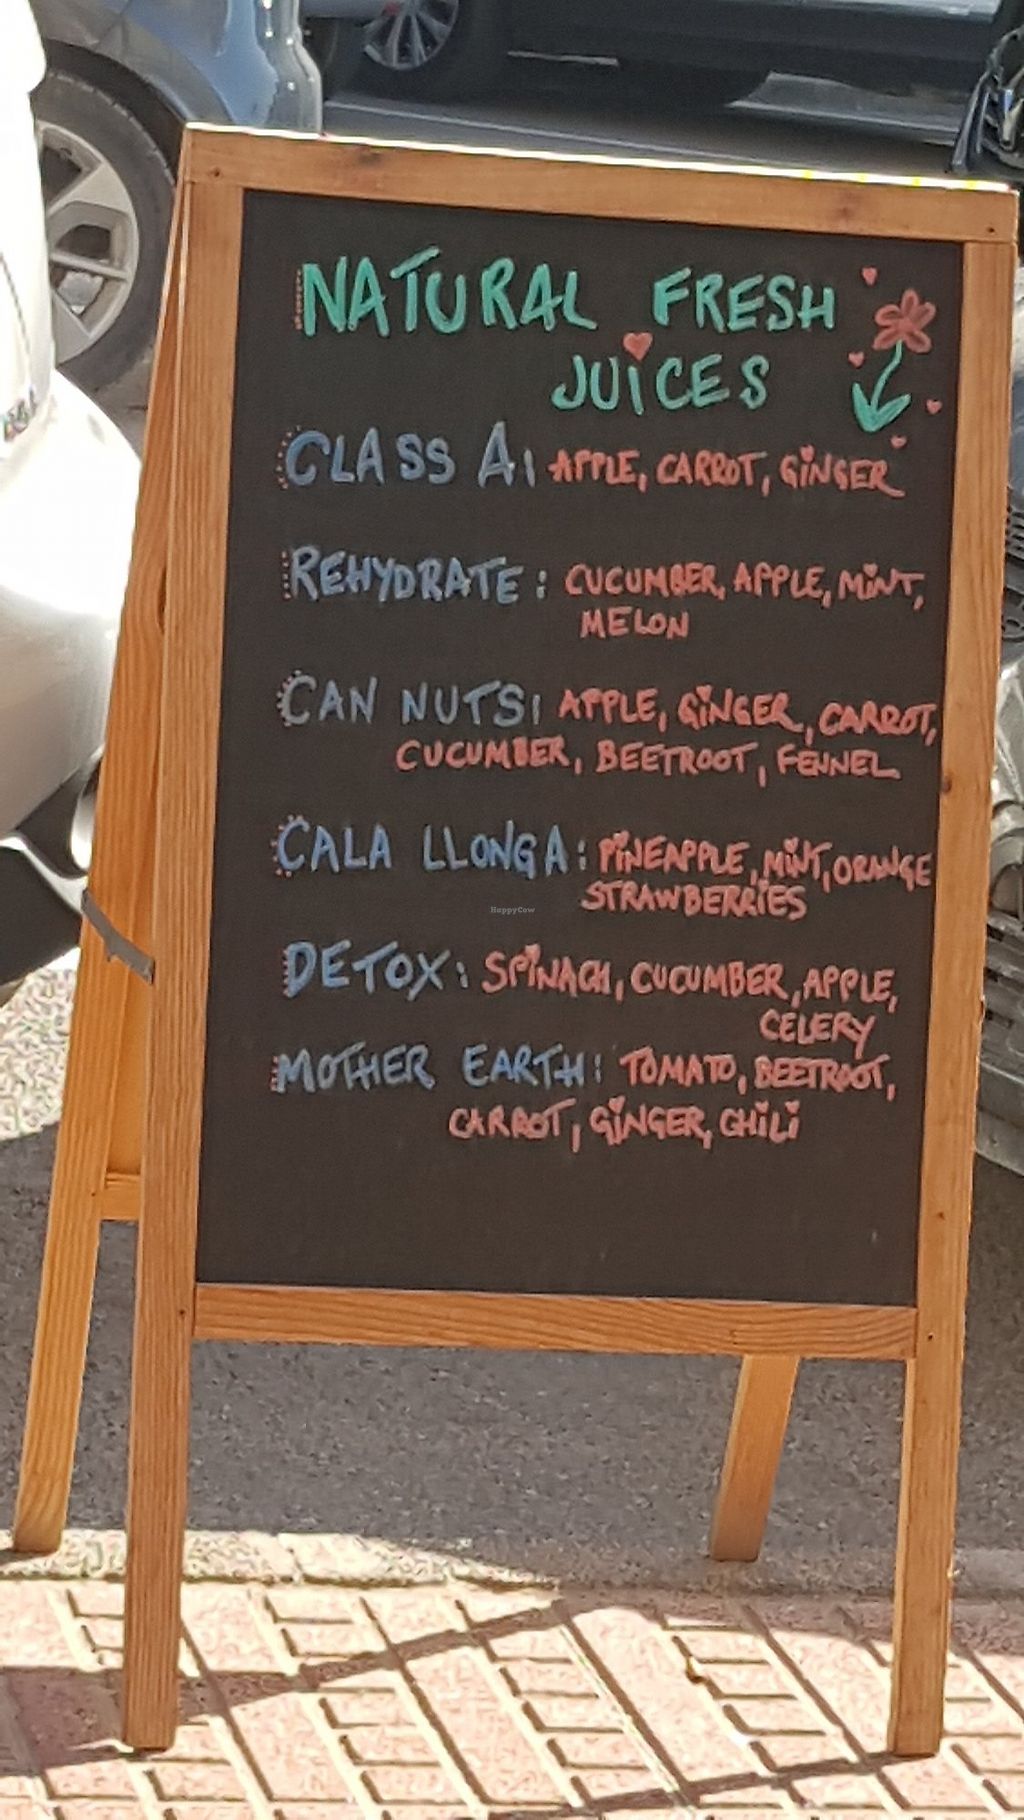 NATURAL FRESH
JUICES
CLASS A: APPLE, CARROT, GINGER
REHYDRATE: CUCUMBER, APPLE, MINT,
MELON
CAN NUTS: APPLE, GINGER, CARROT,
CUCUMBER, BEETROOT, FENNEL
CALA LLONGA: PINEAPPLE, MINT, ORANGE
STRAWBERRIES
HappyCow
DETOX: SPINACH, CUCUMBER, APPLE,
CELERY
MOTHER EARTH: TOMATO, BEETROOT,
CARROT, GINGER, CHILI